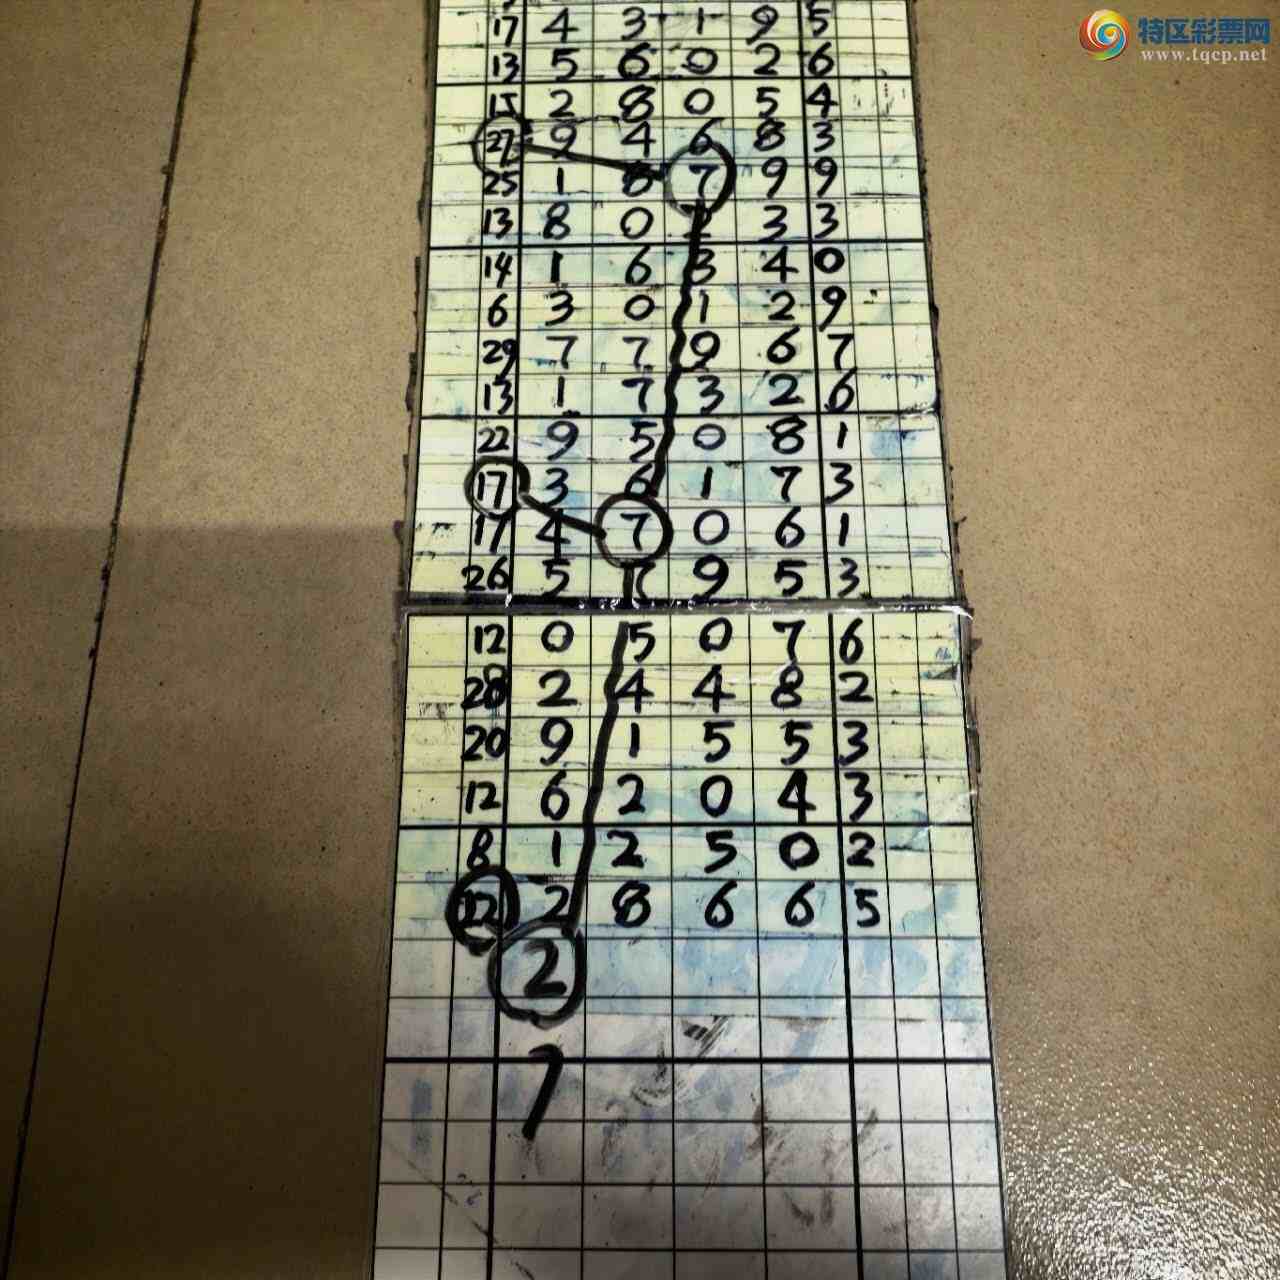 特区彩票网
www.tqcp.net
17 4 3 1 9 5
13 5 6 0 2 6
15 2 8 0 5 4
27 9 4 6 8 3
25 1 8 7 9 9
13 8 0 2 3 3
14 1 6 3 4 0
6 3 0 1 2 9
29 7 7 9 6 7
13 1 7 3 2 6
22 9 5 0 8 1
17 3 6 1 7 3
17 4 7 0 6 1
26 5 7 9 5 3
12 0 5 0 7 6
2 4 4 8 2
20 9 1 5 5 3
12 6 2 0 4 3
8 1 2 5 0 2
22 2 8 6 6 5
2
7